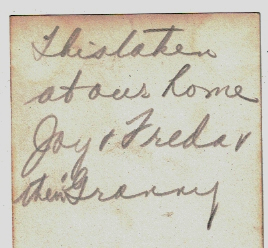 This taken
at our home
Joy & Freda &
their Granny